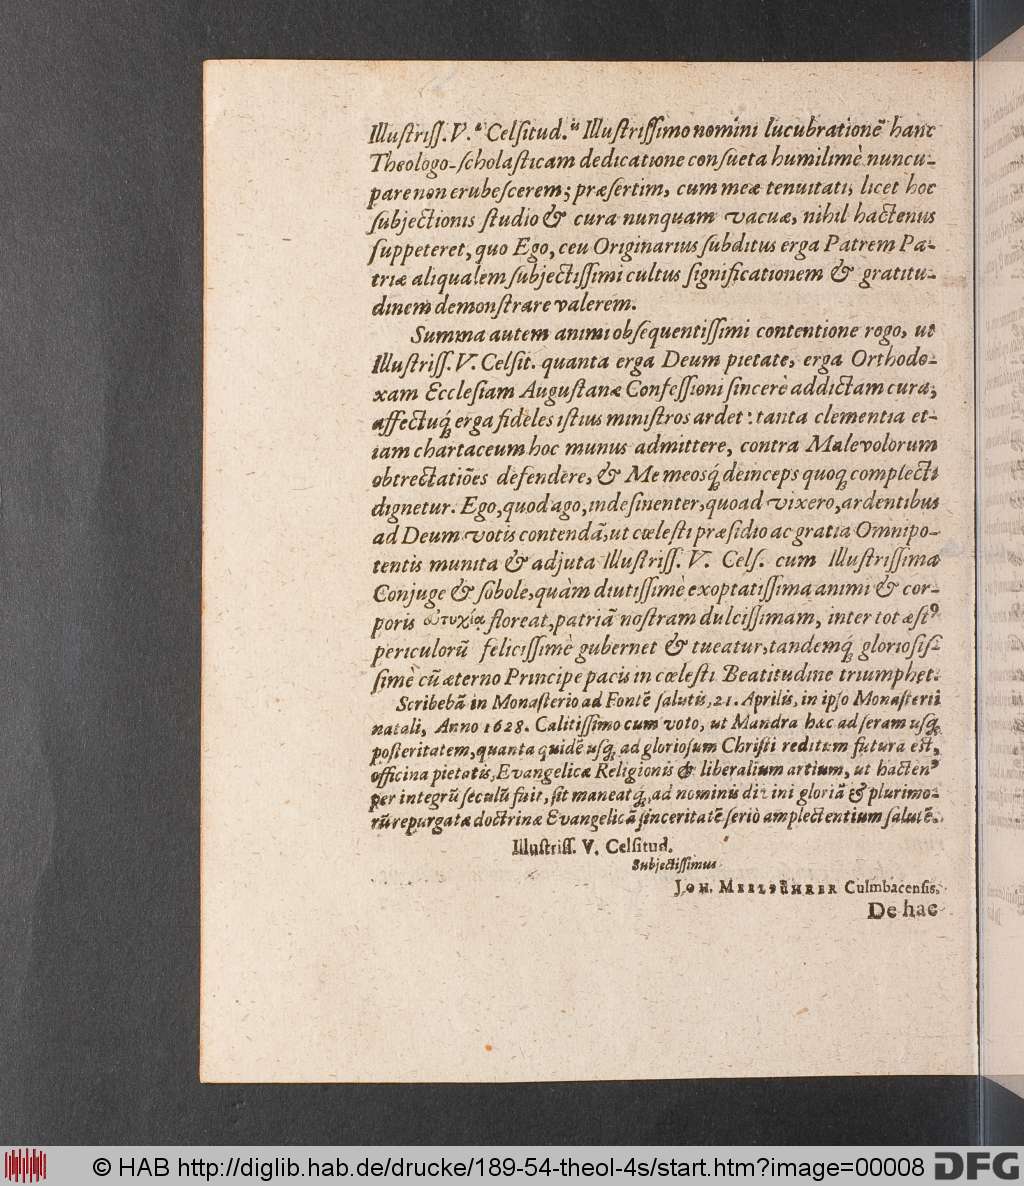 Illustriss. V.ᵃ Celsitud.ᵘ Illustrissimo nomini lucubrationē hanc
Theologo-scholasticam dedicatione consueta humilimè nuncu-
pare non erubescerem; præsertim, cum meæ tenuitati, licet hoc
subjectionis studio & cura nunquam vacuæ, nihil hactenus
suppeteret, quo Ego, ceu Originarius subditus erga Patrem Pa-
triæ aliqualem subjectissimi cultus significationem & gratitu-
dinem demonstrare valerem.
Summa autem animi obsequentissimi contentione rogo, ut
Illustriss. V. Celsit. quanta erga Deum pietate, erga Orthodo-
xam Ecclesiam Augustanæ Confessioni sincerè addictam cura,
affectuq́ erga fideles istius ministros ardet: tanta clementia et-
iam chartaceum hoc munus admittere, contra Malevolorum
obtrectatiões defendere, & Me meosq́ deinceps quoq complecti
dignetur. Ego, quod ago, indesinenter, quoad vixero, ardentibus
ad Deum votis contendā, ut cœlesti præsidio ac gratia Omnipo-
tentis munita & adjuta Illustriss. V. Cels. cum Illustrissima
Conjuge & sobole, quàm diutissimè exoptatissima animi & cor-
poris εὐτυχίᾳ floreat, patriā nostram dulcissimam, inter tot æstꝰ
periculorū felicissimè gubernet & tueatur, tandemq́ gloriosis-
simè cū æterno Principe pacis in cœlesti Beatitudine triumphet.
Scribebā in Monasterio ad Fontē salutis, 21. Aprilis, in ipso Monasterii
natali, Anno 1628. Calitissimo cum voto, ut Mandra hæc ad seram usq́
posteritatem, quanta quidē usq́ ad gloriosum Christi reditum futura est,
officina pietatis, Evangelicæ Religionis & liberalium artium, ut hactenꝰ
per integrū seculū fuit, sit maneatq́, ad nominis divini gloriā & plurimo-
rū repurgatæ doctrinæ Evangelicā sinceritatē seriò amplectentium salutē.
Illustriss. V. Celsitud.
Subjectissimus
JOH. MEELFÜHRER Culmbacensis.
De hac
© HAB http://diglib.hab.de/drucke/189-54-theol-4s/start.htm?image=00008
DFG